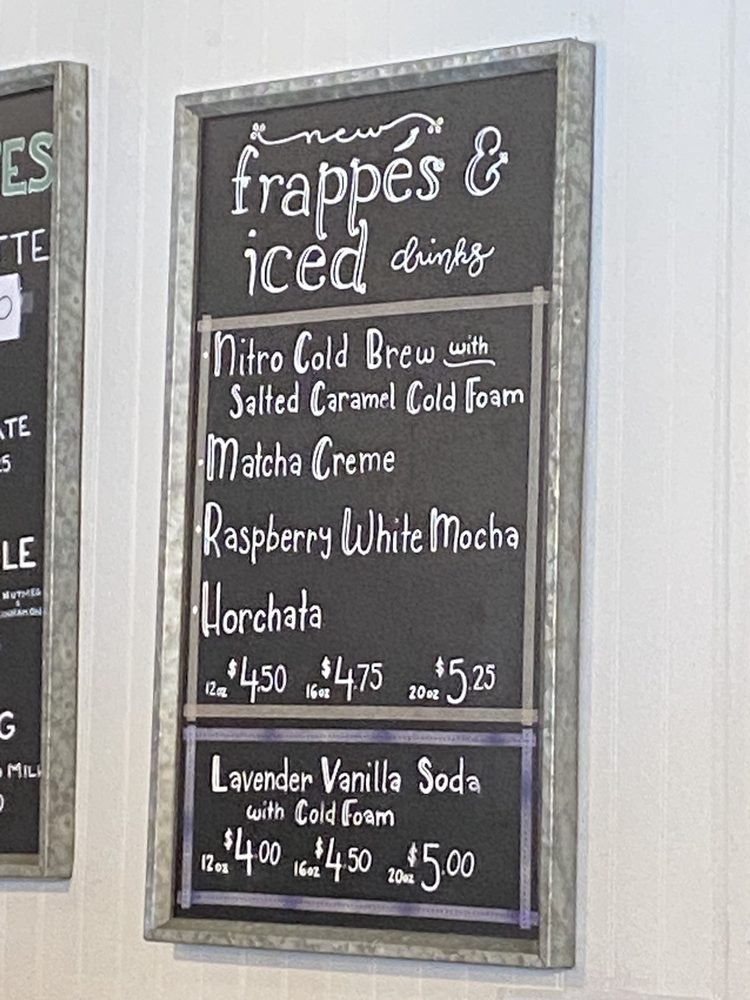 ES
TTE
ATE
LE
NUTMEG
&
CINNAMON
G
MILK
new
frappés &
iced drinks
· Nitro Cold Brew with
Salted Caramel Cold Foam
· Matcha Creme
· Raspberry White Mocha
· Horchata
12oz $4.50 16oz $4.75 20oz $5.25
Lavender Vanilla Soda
with Cold Foam
12oz $4.00 16oz $4.50 20oz $5.00